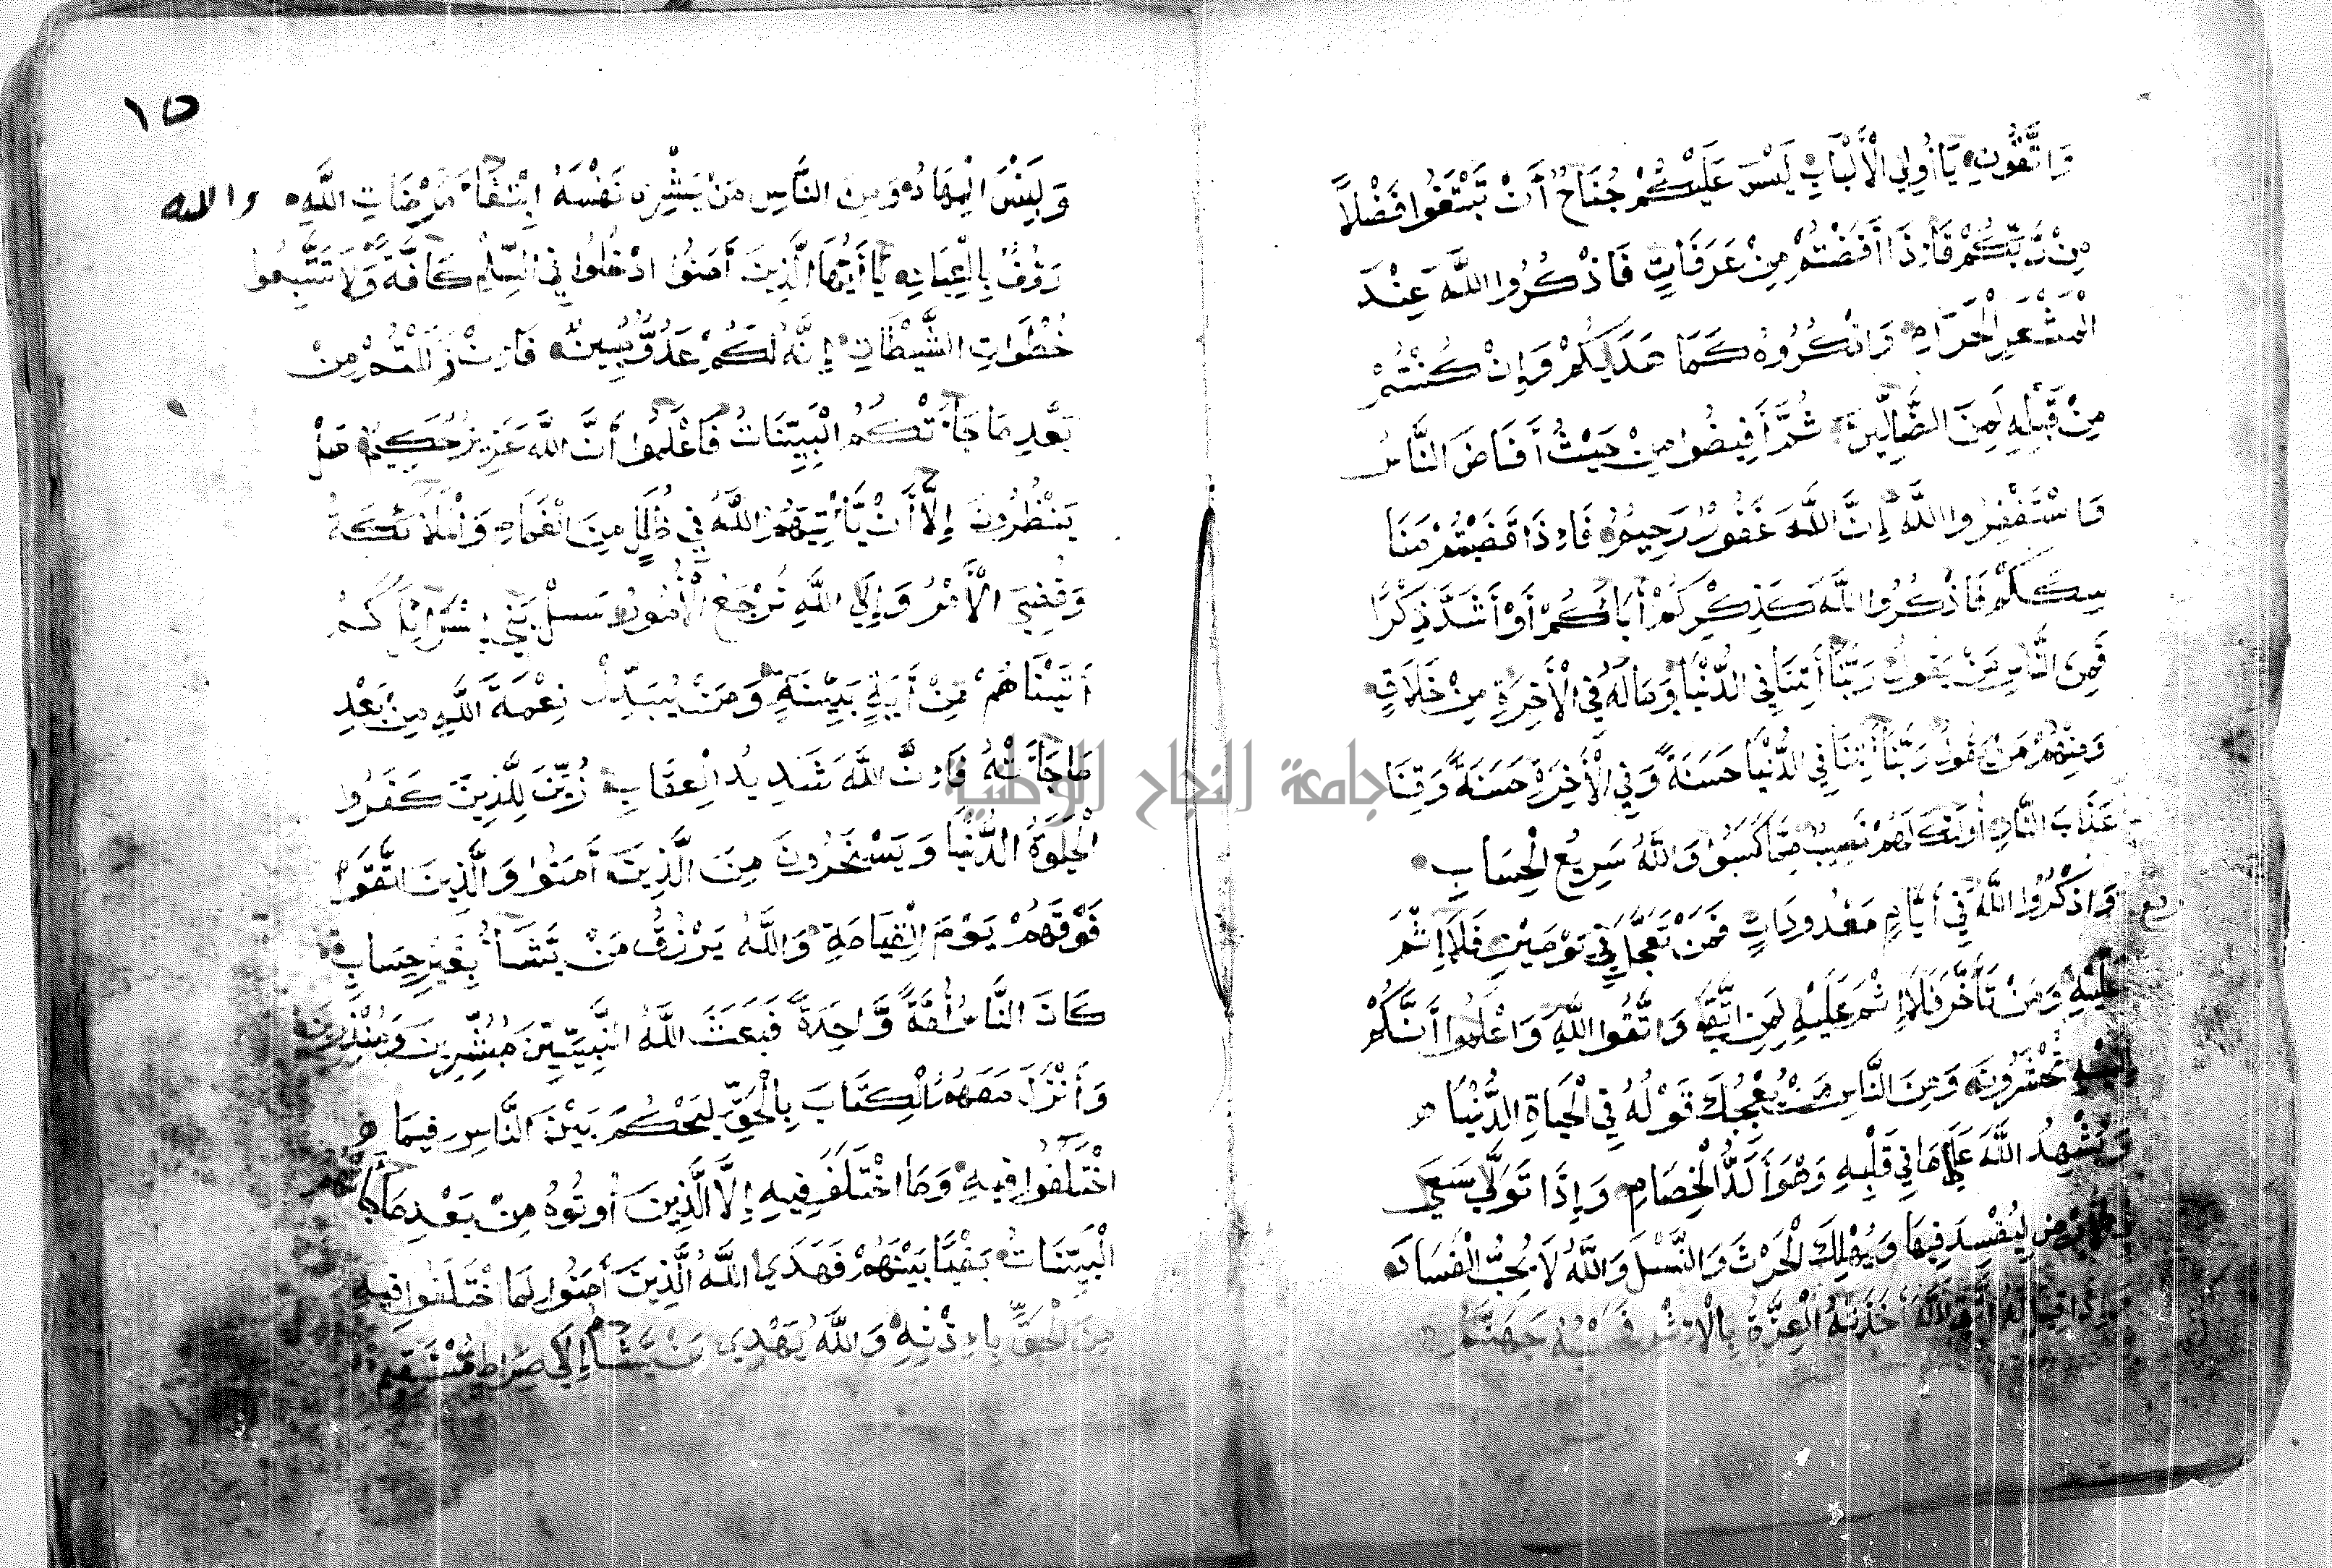 وَاتَّقُونِ يَا أُولِي الْأَلْبَابِ لَيْسَ عَلَيْكُمْ جُنَاحٌ أَنْ تَبْتَغُوا فَضْلًا
مِنْ رَّبِّكُمْ فَإِذَا أَفَضْتُمْ مِنْ عَرَفَاتٍ فَاذْكُرُوا اللَّهَ عِنْدَ
الْمَشْعَرِ الْحَرَامِ وَاذْكُرُوهُ كَمَا هَدَيكُمْ وَإِنْ كُنْتُمْ
مِنْ قَبْلِهِ لَمِنَ الضَّالِّينَ ثُمَّ أَفِيضُوا مِنْ حَيْثُ أَفَاضَ النَّاسُ
فَاسْتَغْفِرُوا اللَّهَ إِنَّ اللَّهَ غَفُورٌ رَحِيمٌ فَإِذَا قَضَيْتُمْ مَنَا
سِكَكُمْ فَاذْكُرُوا اللَّهَ كَذِكْرِكُمْ أَبَاءَكُمْ أَوْ أَشَدَّ ذِكْرًا
فَمِنَ النَّاسِ مَنْ يَقُولُ رَبَّنَا أَتِنَا فِي الدُّنْيَا وَمَا لَهُ فِي الْأَخِرَةِ مِنْ خَلَاقٍ
وَمِنْهُمْ مَنْ يَقُولُ رَبَّنَا أَتِنَا فِي الدُّنْيَا حَسَنَةً وَفِي الْأَخِرَةِ حَسَنَةً وَقِنَا
عَذَابَ النَّارِ أُولَئِكَ لَهُمْ نَصِيبٌ مِمَّا كَسَبُوا وَاللَّهُ سَرِيعُ الْحِسَابِ
وَاذْكُرُوا اللَّهَ فِي أَيَّامٍ مَعْدُودَاتٍ فَمَنْ تَعَجَّلَ فِي يَوْمَيْنِ فَلَا إِثْمَ
عَلَيْهِ وَمَنْ تَأَخَّرَ فَلَا إِثْمَ عَلَيْهِ لِمَنِ اتَّقَى وَاتَّقُوا اللَّهَ وَاعْلَمُوا أَنَّكُمْ
إِلَيْهِ تُحْشَرُونَ وَمِنَ النَّاسِ مَنْ يُعْجِبُكَ قَوْلُهُ فِي الْحَيَاةِ الدُّنْيَا
وَيُشْهِدُ اللَّهَ عَلَى مَا فِي قَلْبِهِ وَهُوَ أَلَدُّ الْخِصَامِ وَإِذَا تَوَلَّى سَعَى
فِي الْأَرْضِ لِيُفْسِدَ فِيهَا وَيُهْلِكَ الْحَرْثَ وَالنَّسْلَ وَاللَّهُ لَا يُحِبُّ الْفَسَادَ
وَإِذَا قِيلَ لَهُ اتَّقِ اللَّهَ أَخَذَتْهُ الْعِزَّةُ بِالْإِثْمِ فَحَسْبُهُ جَهَنَّمُ
١٥
وَلَبِئْسَ الْمِهَادُ وَمِنَ النَّاسِ مَنْ يَشْرِي نَفْسَهُ ابْتِغَاءَ مَرْضَاتِ اللَّهِ والله
رَؤُفٌ بِالْعِبَادِ يَا أَيُّهَا الَّذِينَ أَمَنُوا ادْخُلُوا فِي السِّلْمِ كَافَّةً وَلَا تَتَّبِعُوا
خُطُوَاتِ الشَّيْطَانِ إِنَّهُ لَكُمْ عَدُوٌّ مُّبِينٌ فَإِنْ زَلَلْتُمْ مِنْ
بَعْدِ مَا جَاءَتْكُمُ الْبَيِّنَاتُ فَاعْلَمُوا أَنَّ اللَّهَ عَزِيزٌ حَكِيمٌ هَلْ
يَنْظُرُونَ إِلَّا أَنْ يَّأْتِيَهُمُ اللَّهُ فِي ظُلَلٍ مِنَ الْغَمَامِ وَالْمَلَائِكَةُ
وَقُضِيَ الْأَمْرُ وَإِلَى اللَّهِ تُرْجَعُ الْأُمُورُ سَلْ بَنِي إِسْرَائِيلَ كَمْ
أَتَيْنَاهُمْ مِّنْ أَيَةٍ بَيِّنَةٍ وَمَنْ يُبَدِّلْ نِعْمَةَ اللَّهِ مِنْ بَعْدِ
مَا جَاءَتْهُ فَإِنَّ اللَّهَ شَدِيدُ الْعِقَابِ زُيِّنَ لِلَّذِينَ كَفَرُوا
الْحَيَوةُ الدُّنْيَا وَيَسْخَرُونَ مِنَ الَّذِينَ أَمَنُوا وَالَّذِينَ اتَّقَوْا
فَوْقَهُمْ يَوْمَ الْقِيَامَةِ وَاللَّهُ يَرْزُقُ مَنْ يَّشَاءُ بِغَيْرِ حِسَابٍ
كَانَ النَّاسُ أُمَّةً وَّاحِدَةً فَبَعَثَ اللَّهُ النَّبِيِّينَ مُبَشِّرِينَ وَمُنْذِرِينَ
وَأَنْزَلَ مَعَهُمُ الْكِتَابَ بِالْحَقِّ لِيَحْكُمَ بَيْنَ النَّاسِ فِيمَا
اخْتَلَفُوا فِيهِ وَمَا اخْتَلَفَ فِيهِ إِلَّا الَّذِينَ أُوتُوهُ مِنْ بَعْدِ مَا جَاءَتْهُمُ
الْبَيِّنَاتُ بَغْيًا بَيْنَهُمْ فَهَدَى اللَّهُ الَّذِينَ أَمَنُوا لِمَا اخْتَلَفُوا فِيهِ
مِنَ الْحَقِّ بِإِذْنِهِ وَاللَّهُ يَهْدِي مَنْ يَشَاءُ إِلَى صِرَاطٍ مُسْتَقِيمٍ
جامعة النجاح الوطنية